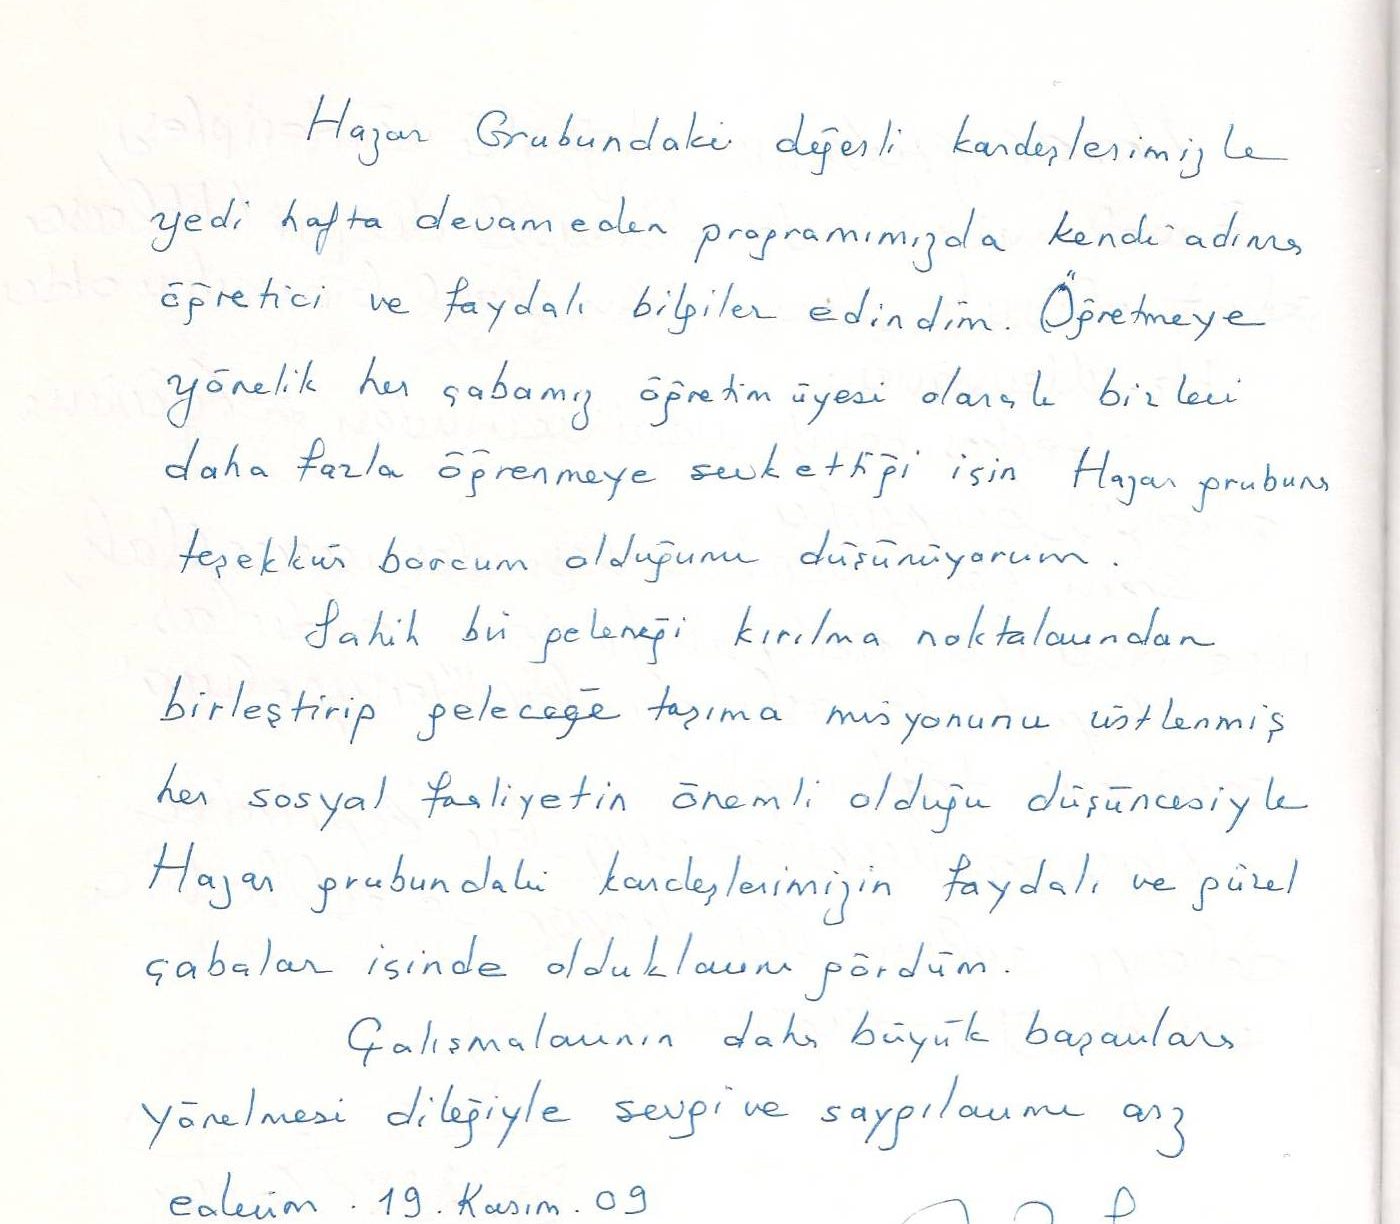 Hazar Grubundaki değerli kardeşlerimizle
yedi hafta devam eden programımızda kendi adıma
öğretici ve faydalı bilgiler edindim. Öğretmeye
yönelik her çabamız öğretim üyesi olarak bizleri
daha fazla öğrenmeye sevkettiği için Hazar grubuna
teşekkür borcum olduğunu düşünüyorum.
Sahih bir geleneği kırılma noktalarından
birleştirip geleceğe taşıma misyonunu üstlenmiş
her sosyal faaliyetin önemli olduğu düşüncesiyle
Hazar grubundaki kardeşlerimizin faydalı ve güzel
çabalar içinde olduklarını gördüm.
Çalışmalarının daha büyük başarılara
yönelmesi dileğiyle sevgi ve saygılarımı arz
ederim. 19.Kasım.09